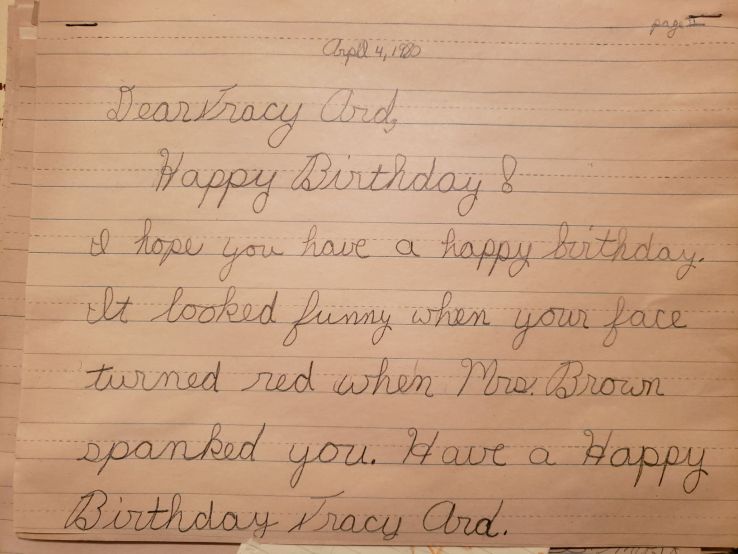 page II
April 4, 1980
Dear Tracy Ard,
Happy Birthday!
I hope you have a happy birthday.
It looked funny when your face
turned red when Mrs. Brown
spanked you. Have a Happy
Birthday Tracy Ard.